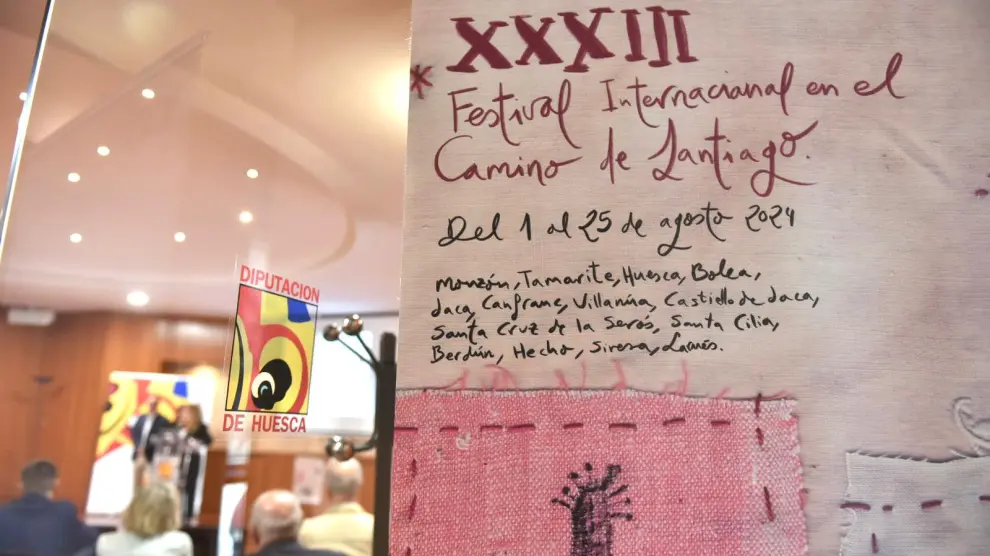 XXXIII
* Festival Internacional en el
Camino de Santiago.
Del 1 al 25 de agosto 2024
Monzón, Tamarite, Huesca, Bolea,
Jaca, Canfranc, Villanúa, Castiello de Jaca,
Santa Cruz de la Serós, Santa Cilia,
Berdún, Hecho, Siresa, Larués.
DIPUTACION
DE HUESCA